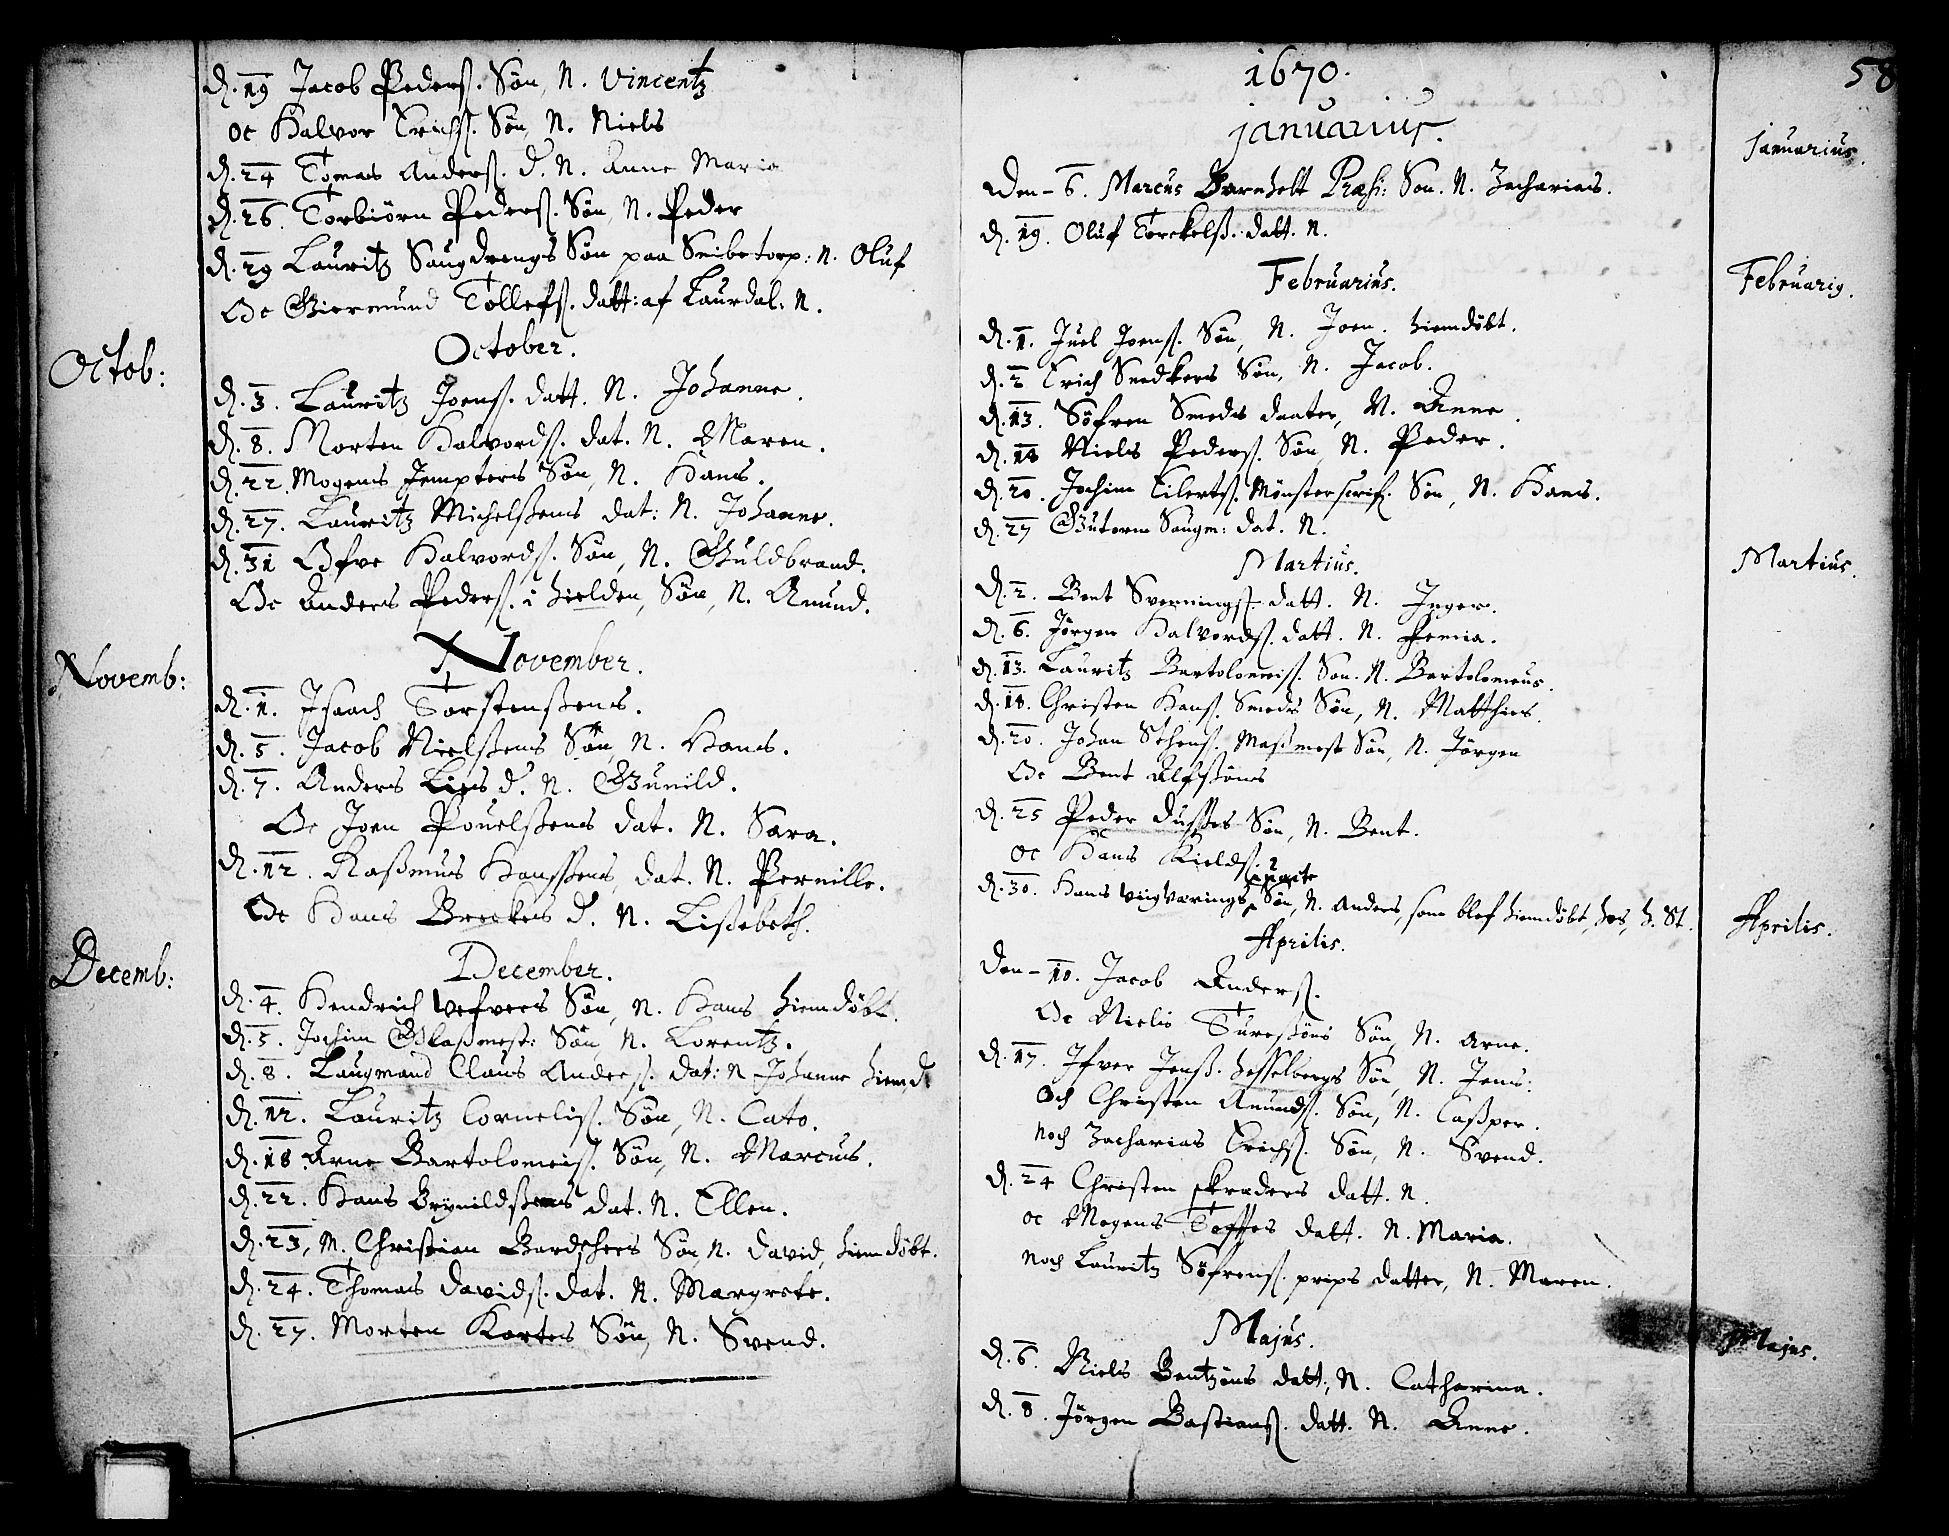 d. 19 Jacob Peders. Sön, N. Vincentz
oc Halvor Erichs. Sön, N. Niels
d. 24 Tomas Anders. d. N. Anne Maria
d. 26. Torbiörn Peders. Sön, N. Peder
d. 29 Lauritz Saugdrengs Sön paa : N. Oluf
Oc Giermund Tollefs. datt: af Laurdal: N.
October.
Octob:
d. 3. Lauritz Joens. datt. N. Johanne.
d. 8. Morten Halvords. dat. N. Maren.
d. 22. Mogens Jempters Sön, N. Hans.
d. 27. Lauritz Michelßens dat: N. Johanne.
d. 31 Ofve Halvords. Sön, N. Guldbrand.
Oc Anders Peders. i hielden, Sön, N. Amund.
November.
Novemb:
d. 1. Isaach Torstenßens.
d. 5. Jacob Nielßens Sön, N. Hans.
d. 7. Anders Lies d. N. Gunild.
Oc Joen Pouelßens dat. N. Sara.
d. 12. Raßmus Hanßens dat. N. Pernille.
Oc Hans Breckes d. N. Lisebeth.
December.
Decemb:
d. 4. Hendrich Vefvers Sön, N. Hans hiemdöbt.
d. 5. Jochim Glaßmest: Sön, N. Lorentz.
d. 8. Laugmand Claus Anders. dat: N Johanne hiemd.
d. 12. Lauritz Cornelis. Sön, N. Cato.
d. 18. Arne Bartolomeis. Sön, N. Marcus.
d. 22. Hans Brynildßens dat. N. Ellen.
d. 23, M. Christian Bardscheers Sön, N. David, hiemdöbt.
d. 24. Thomas Davids. dat. N. Margrete.
d. 27. Morten Kortes Sön, N. Svend.
58
1670.
januarius.
januarius.
Den - 6. Marcus Barnholt Præsi: Son. N. Zacharias.
d. 19. Oluf Torckelß. datt. N.
Februarius.
Februarig.
d. 1. Juel Joens. Sön, N. Joen. hiemdöbt.
d. 2 Erich Snedkers Sön, N. Jacob.
d. 13. Söfren Smeds daater, N. Anne.
d. 18 Niels Peders. Sön, N. Peder.
d. 20. Jochim Eilerts. Mönsterscrif. Sön, N. Hans.
d. 27 Guterm Saugm: dat. N.
Martius.
Martius.
d. 2. Bent Svernings. datt. N. Inger.
d. 6. Jörgen Halvords. datt. N.
d. 13. Lauritz Bartolomeis. Son. N. Bartolomeus.
d. 18. Christen Hans. Smeds Sön, N. Matthies.
d. 20. Johan Stehens. Maßmest Sön, N. Jörgen
Oc Bent Alfßöns
d. 25 Peder Dußes Sön, N. Bent.
oc Hans Kields.
d. 30. Hans Viigværings Sön, N. Anders, som blef hiemdöbt, hos, h. St.
Aprilis.
Aprilis.
Den - 10. Jacob Anders.
Oc Niels Turesßöns Sön, N. Arne.
d. 17. Ifver Jenß. Hesselbergs Sön, N. Jens:
Och Christen Amunds. Sön, N. Casper.
Noch Zacharias Erichs. Sön, N. Svend.
d. 24 Christen skræders datt. N.
oc Mogens Toffes datt. N. Maria.
Noch Lauritz Söfrens. prips datter, N. Maren.
Majus.
Majus.
d. 6. Niels Bentzöns datt; N. Catharina.
d. 8. Jörgen Bastians. datt. N. Anne.